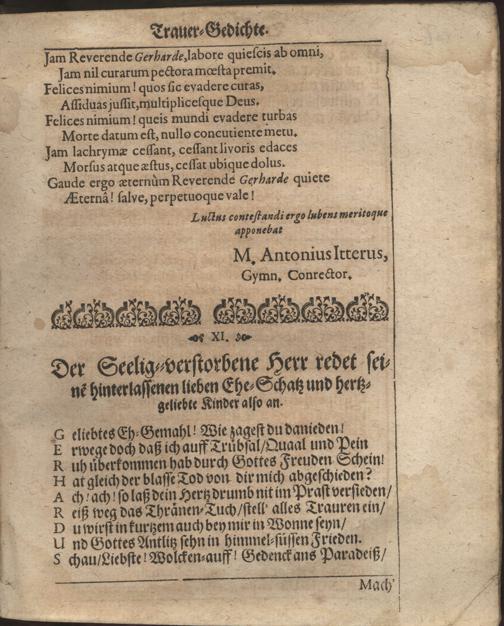 Trauer-Gedichte.
Jam Reverende Gerharde, labore quiescis ab omni,
Jam nil curarum pectora mœsta premit.
Felices nimium! quos sic evadere curas,
Assiduas jussit, multiplicesque Deus.
Felices nimium! queis mundi evadere turbas
Morte datum est, nullo concutiente metu.
Jam lachrymæ cessant, cessant livoris edaces
Morsus atque æstus, cessat ubique dolus.
Gaude ergo æternùm Reverende Gerharde quiete
Æternâ! salve, perpetuoque vale!
Luctus contestandi ergo lubens meritoque
apponebat
M. Antonius Itterus,
Gymn. Conrector.
XI.
Der Seelig-verstorbene Herr redet sei-
nē hinterlassenen lieben Ehe-Schatz und hertz-
geliebte Kinder also an.
G eliebtes Eh-Gemahl! Wie zagest du danieden!
E rwege doch daß ich auff Trübsal/Quaal und Pein
R uh überkommen hab durch Gottes Freuden Schein!
H at gleich der blasse Tod von dir mich abgeschieden?
A ch! ach! so laß dein Hertz drumb nit im Prast versieden/
R eiß weg das Thränen-Tuch/stell' alles Trauren ein/
D u wirst in kurtzem auch bey mir in Wonne seyn/
U nd Gottes Antlitz sehn in himmel-süssen Frieden.
S chau/Liebste! Wolcken-auff! Gedenck ans Paradeiß/
Mach'